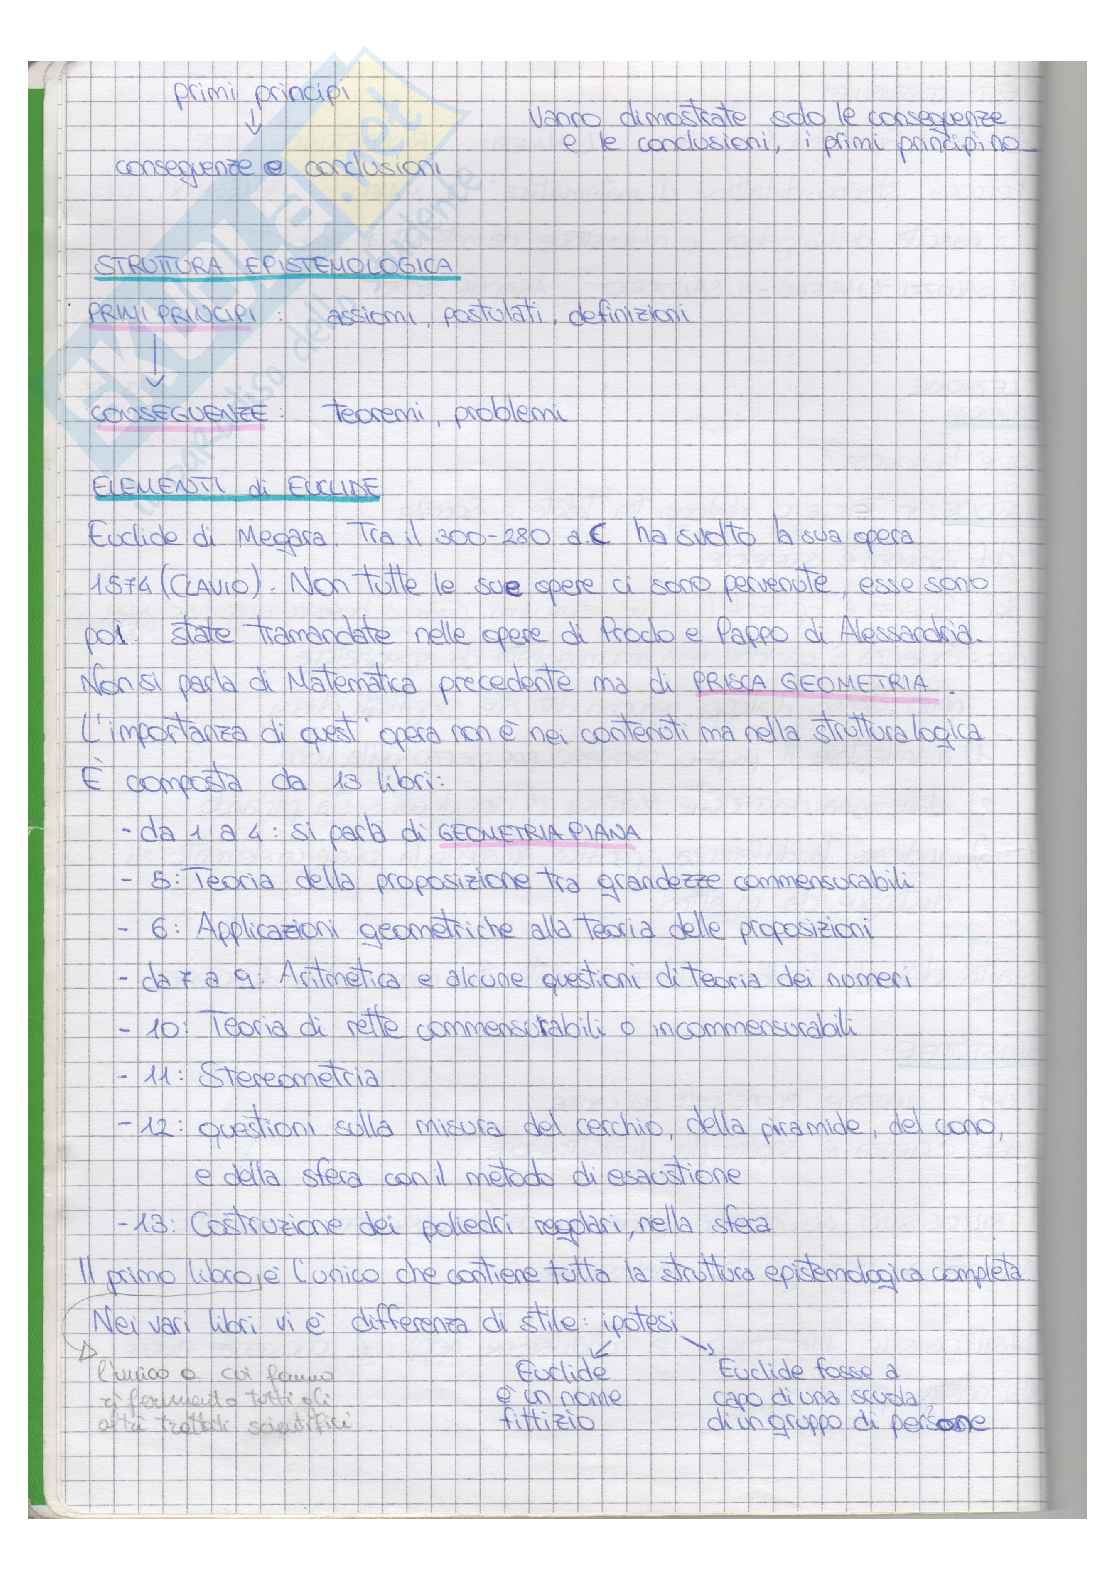 primi principi
↓
conseguenze e conclusioni
Vanno dimostrate solo le conseguenze
e le conclusioni, i primi principi no
STRUTTURA EPISTEMOLOGICA
PRIMI PRINCIPI: assiomi, postulati, definizioni
↓
CONSEGUENZE: teoremi, problemi
ELEMENTI di EUCLIDE
Euclide di Megara. Tra il 300-280 a.C ha svolto la sua opera
1574 (CLAVIO). Non tutte le sue opere ci sono pervenute, esse sono
poi state tramandate nelle opere di Proclo e Pappo di Alessandria.
Non si parla di Matematica precedente ma di PRISCA GEOMETRIA.
L'importanza di quest'opera non è nei contenuti ma nella struttura logica
È composta da 13 libri:
- da 1 a 4: si parla di GEOMETRIA PIANA
- 5: Teoria della proposizione tra grandezze commensurabili
- 6: Applicazioni geometriche alla teoria delle proposizioni
- da 7 a 9: Aritmetica e alcune questioni di teoria dei numeri
- 10: Teoria di rette commensurabili o incommensurabili
- 11: Stereometria
- 12: questioni sulla misura del cerchio, della piramide, del cono,
e della sfera con il metodo di esaustione
- 13: Costruzione dei poliedri regolari, nella sfera
Il primo libro è l'unico che contiene tutta la struttura epistemologica completa
Nei vari libri vi è differenza di stile: ipotesi
l'unico a cui fanno
riferimento tutti gli
altri trattati scientifici
Euclide
è un nome
fittizio
Euclide fosse a
capo di una scuola,
di un gruppo di persone
SKUOLA.net
il paradiso dello studente